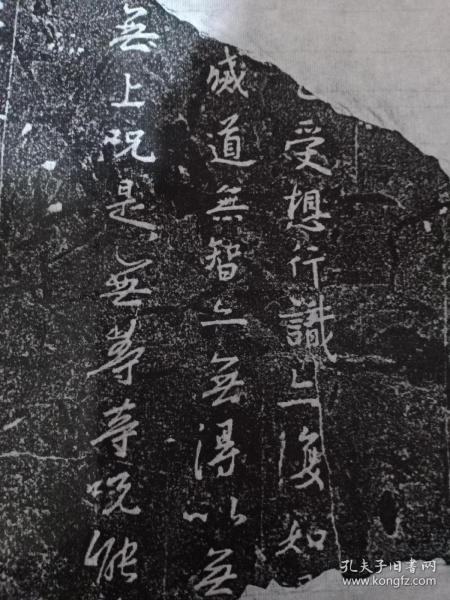 受想行識亦復如
滅道無智亦無得以無
無上呪是無等等呪能
孔夫子旧书网
www.kongfz.com